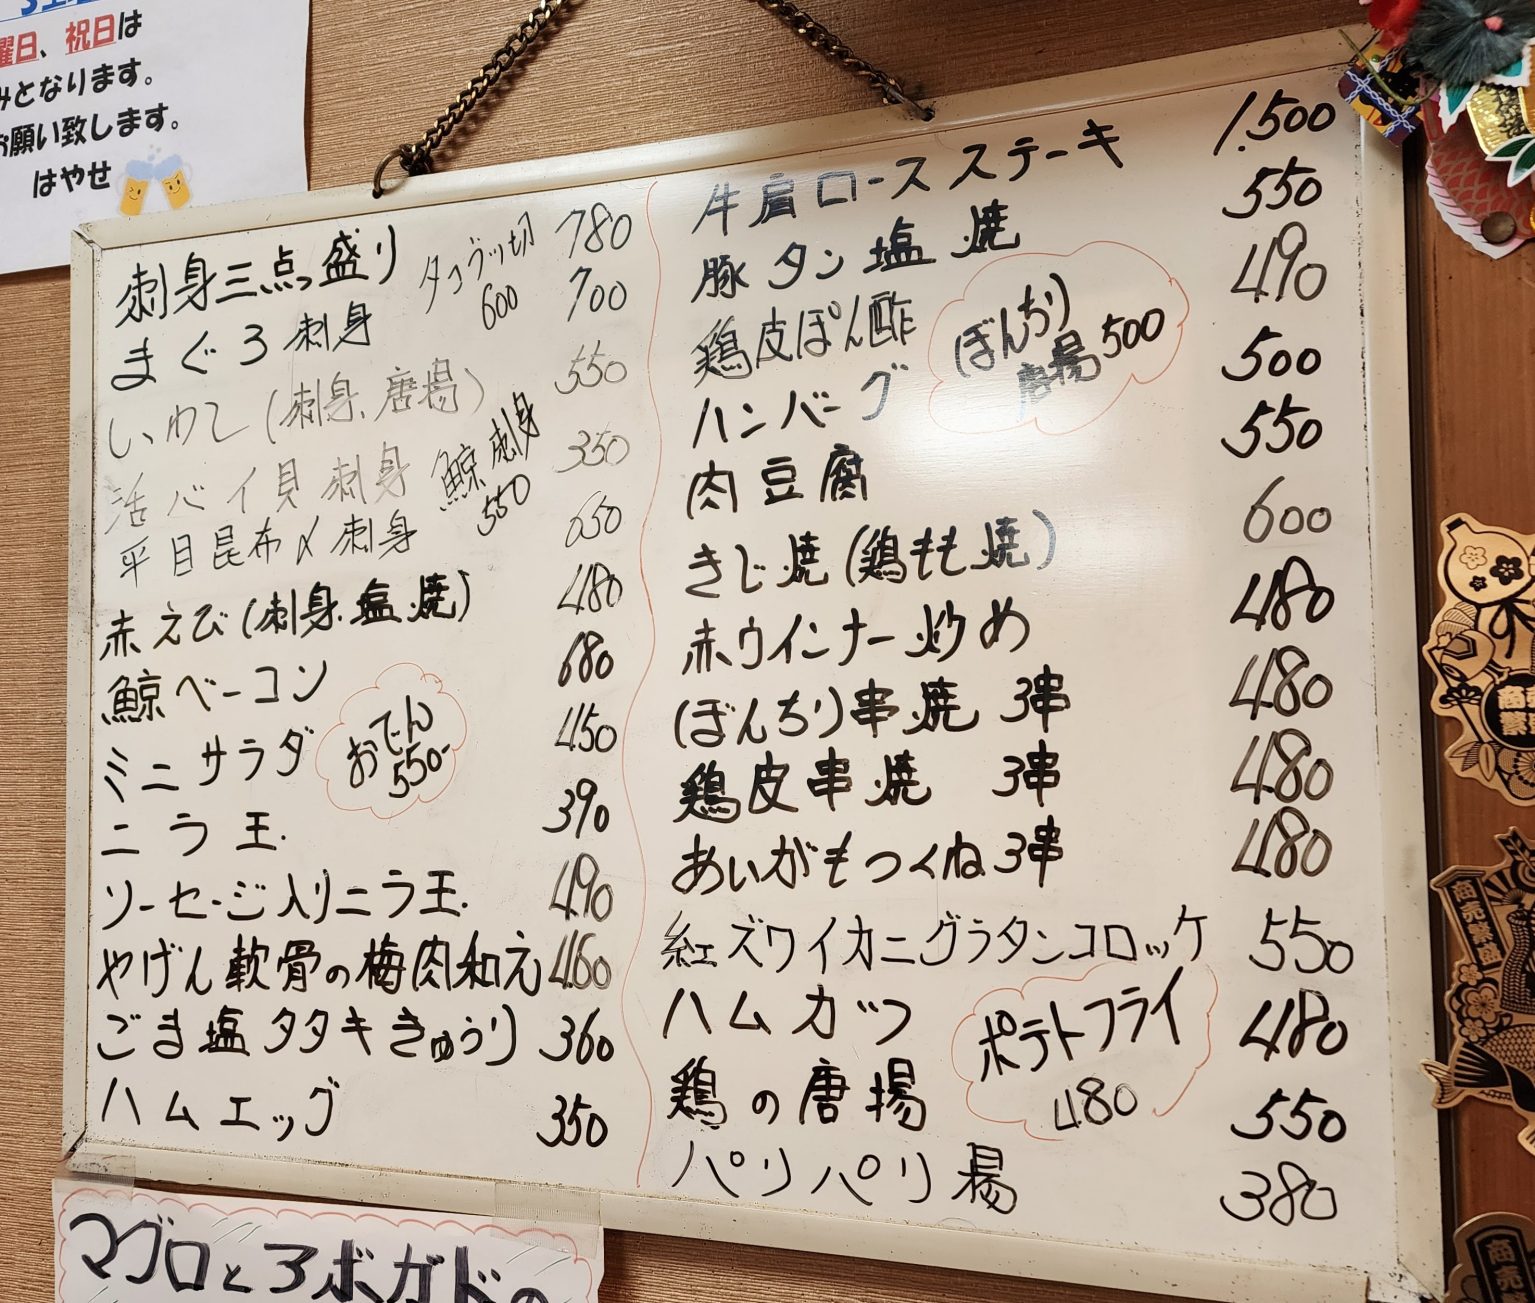 曜日、祝日は
みとなります。
お願い致します。
はやせ
刺身三点っ盛り 780
タコブツ切
600
まぐろ刺身 700
いわし(刺身、唐揚) 550
活バイ貝刺身 350
鯨刺身
550
平目昆布〆刺身 650
赤えび(刺身.塩焼) 480
鯨ベーコン 680
ミニサラダ 450
おでん
550-
ニラ玉. 390
ソーセージ入りニラ玉. 490
やげん軟骨の梅肉和え 460
ごま塩タタキきゅうり 360
ハムエッグ 350
牛肩ロースステーキ 1.500
豚タン塩焼 550
鶏皮ぽん酢 490
ぼんちり
唐揚500
ハンバーグ 500
肉豆腐 550
きじ焼(鶏もも焼) 600
赤ウインナー炒め 480
(ぼんちり)串焼 3串 480
鶏皮串焼 3串 480
あいがもつくね3串 480
紅ズワイカニグラタンコロッケ 550
ハムカツ 480
ポテトフライ
480
鶏の唐揚 550
パリパリ揚 380
マグロとアボガドの